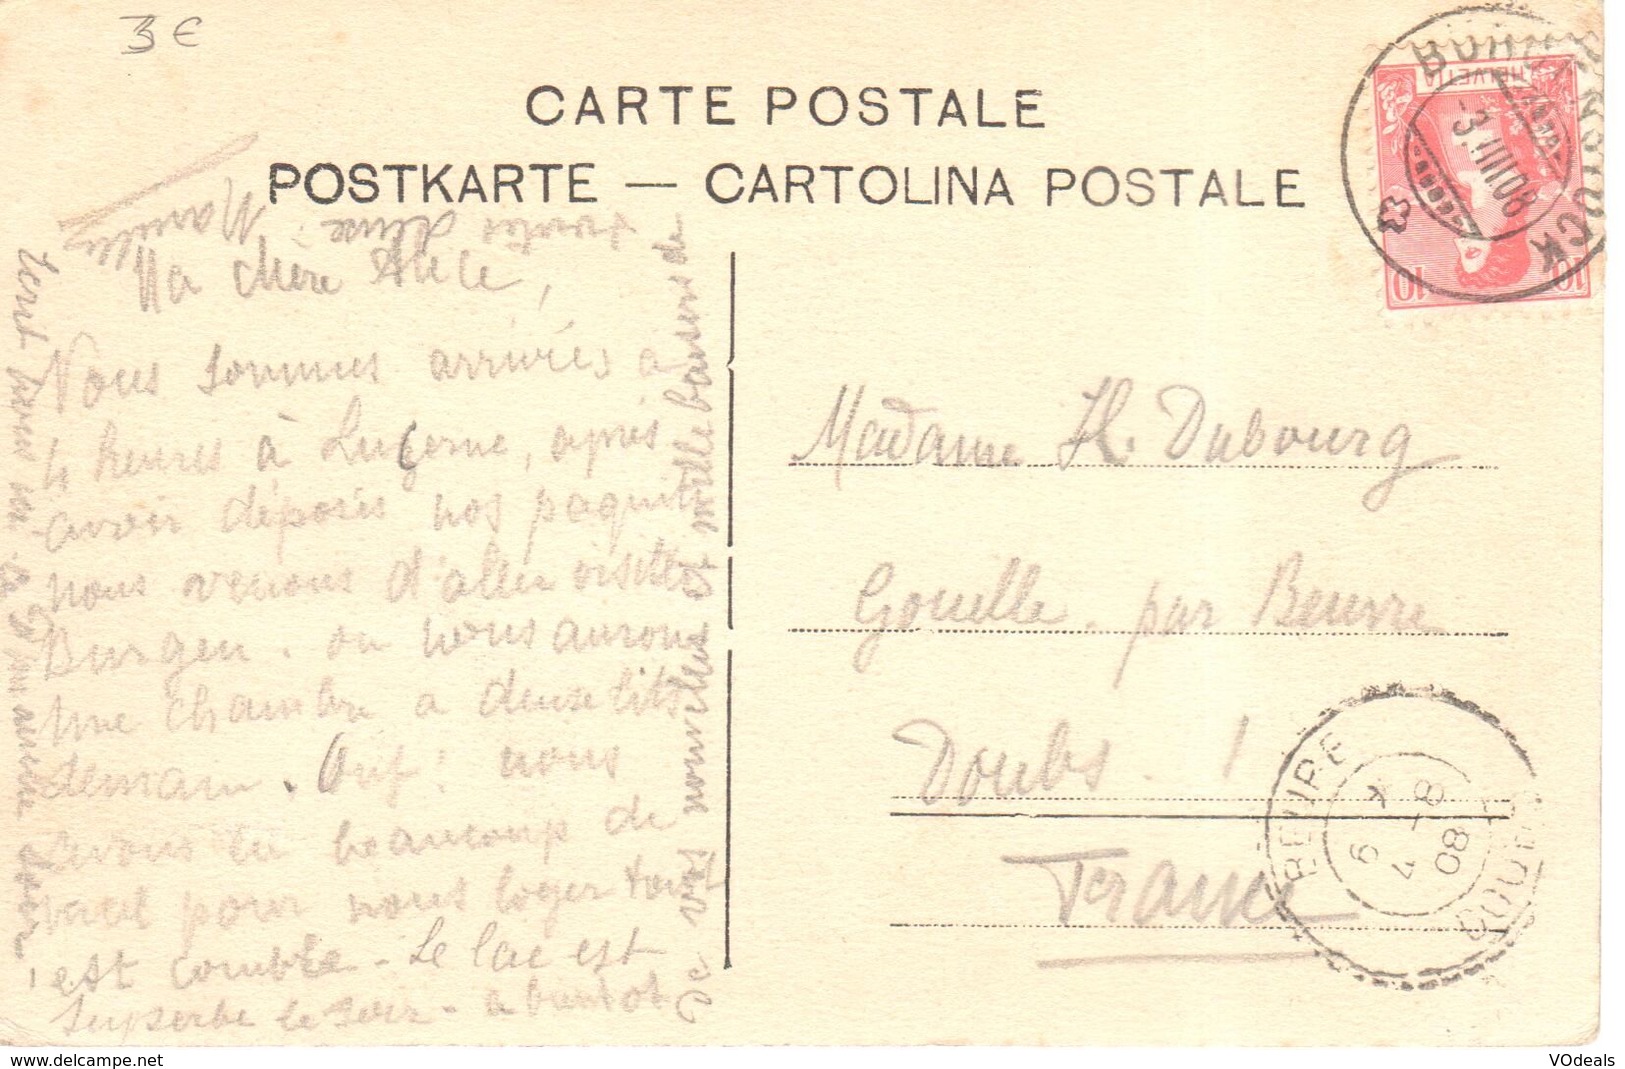 3 €
CARTE POSTALE
POSTKARTE — CARTOLINA POSTALE
HELVETIA
10 10
-3.VIII.08
Ma chère Alice,
Nous sommes arrivés à
4 heures à Lucerne, après
avoir déposés nos paquets
nous venons d'aller visiter
Burgen. ou nous aurons
une chambre a deux lits
demain. Ouf! nous
avons eu beaucoup de
mal pour nous loger tout
est comble - Le lac est
superbe le soir - a bientot
de vos nouvelles et mille baisers de
toutes deux.
Madame H. Dubourg
Gouille par Beurre
Doubs
France
BEURE
DOUBS
8 -
7
9
08
www.delcampe.net
VOdeals